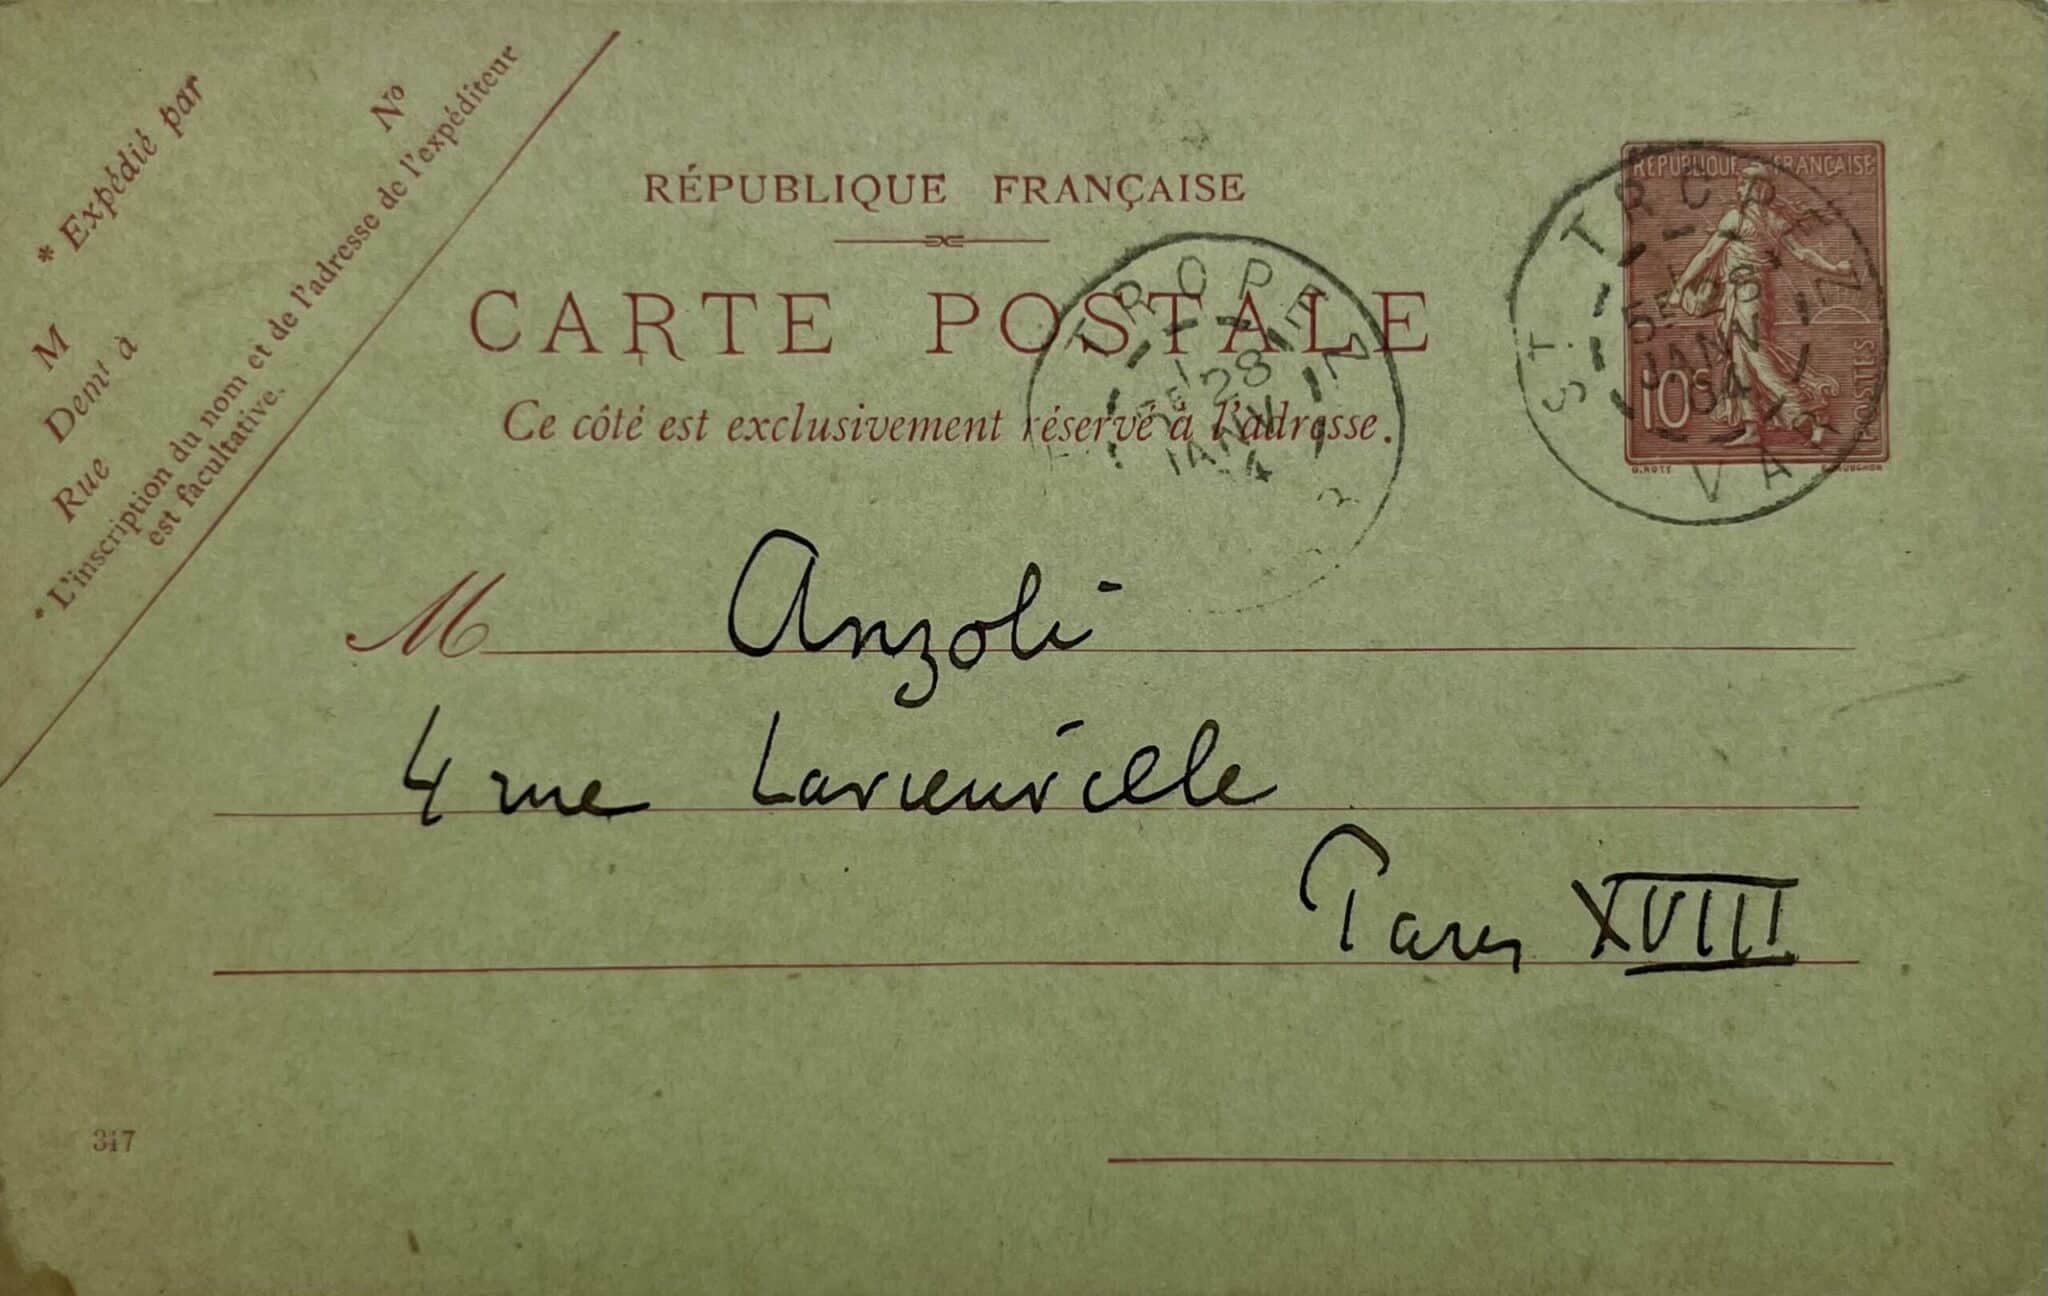 * Expédié par
N°
M
Demt à
Rue
* L'inscription du nom et de l'adresse de l'expéditeur
est facultative.
RÉPUBLIQUE FRANÇAISE
CARTE POSTALE
Ce côté est exclusivement réservé à l'adresse.
TROPEZ
1E
28
JANV
4
RÉPUBLIQUE FRANÇAISE
10c
POSTES
O. ROTY
ST TROPEZ
1E 28
JANV
04
VAR
M Anzoli
4 rue Lavieuville
Paris XVIII
317